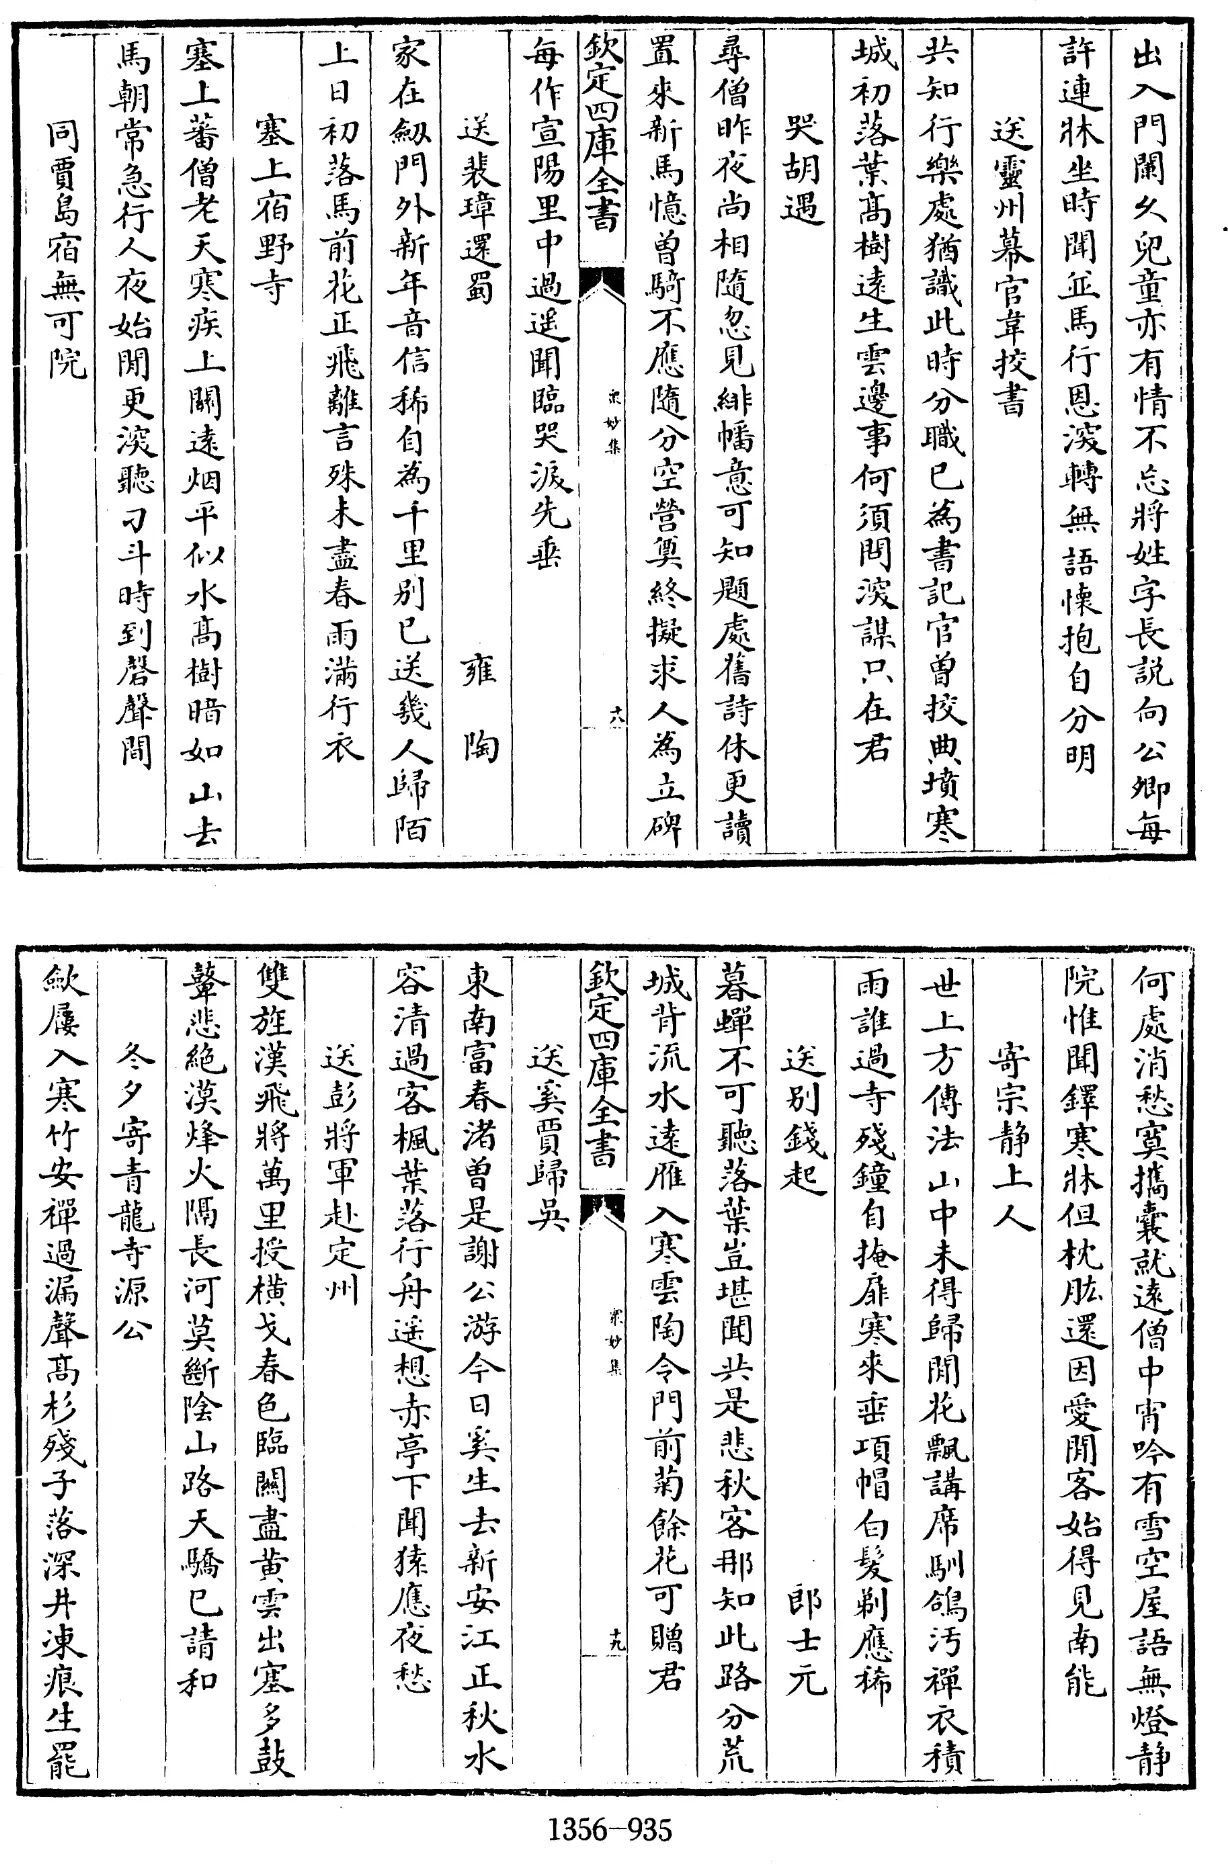 出入門闌久兒童亦有情不忘將姓字長説向公卿每
許連牀坐時聞並馬行恩深轉無語懷抱自分明
送靈州幕官韋挍書
共知行樂處猶識此時分職已為書記官曾挍典墳寒
城初落葉髙樹遠生雲邊事何須問深謀只在君
哭胡遇
尋僧昨夜尚相隨忽見緋幡意可知題處舊詩休更讀
置來新馬憶曾騎不應隨分空營奠終擬求人為立碑
欽定四庫全書
衆妙集
十八
每作宣陽里中過遥聞臨哭淚先垂
送裴璋還蜀
雍陶
家在劔門外新年音信稀自為千里别已送幾人歸陌
上日初落馬前花正飛離言殊未盡春雨滿行衣
塞上宿野寺
塞上蕃僧老天寒疾上關遠烟平似水髙樹暗如山去
馬朝常急行人夜始閒更深聽刁斗時到磬聲間
同賈島宿無可院
何處消愁寞攜囊就遠僧中宵吟有雪空屋語無燈靜
院惟聞鐸寒牀但枕肱還因愛閒客始得見南能
寄宗静上人
世上方傳法山中未得歸閒花飄講席馴鴿汚禪衣積
雨誰過寺殘鐘自掩扉寒來垂項帽白髮剃應稀
送别錢起
郎士元
暮蟬不可聽落葉豈堪聞共是悲秋客那知此路分荒
城背流水遠雁入寒雲陶令門前菊餘花可贈君
欽定四庫全書
衆妙集
十九
送奚賈歸吳
東南富春渚曾是謝公游今日奚生去新安江正秋水
容清過客楓葉落行舟遥想赤亭下聞猿應夜愁
送彭將軍赴定州
雙旌漢飛將萬里授橫戈春色臨關盡黄雲出塞多鼓
鼙悲絶漠烽火隔長河莫斷陰山路天驕已請和
冬夕寄青龍寺源公
斂屨入寒竹安禪過漏聲髙杉殘子落深井凍痕生罷
1356-935